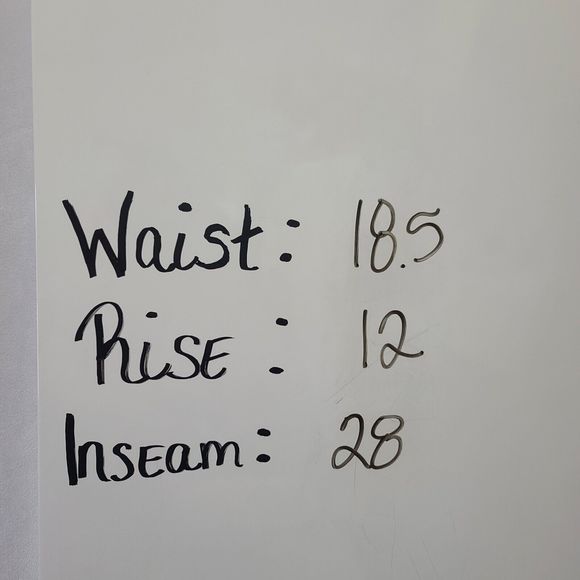 Waist: 18.5
Rise: 12
Inseam: 28